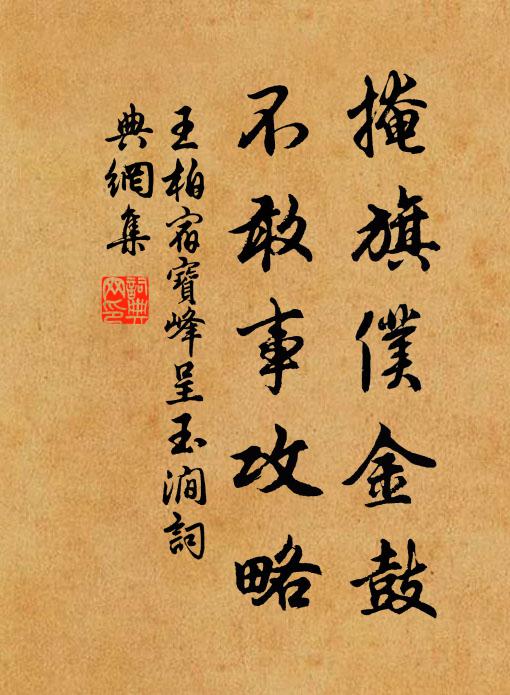 掩旗僕金鼓
不敢事攻略
王柏宿寶峰呈玉澗詞
典網集
詞典網印